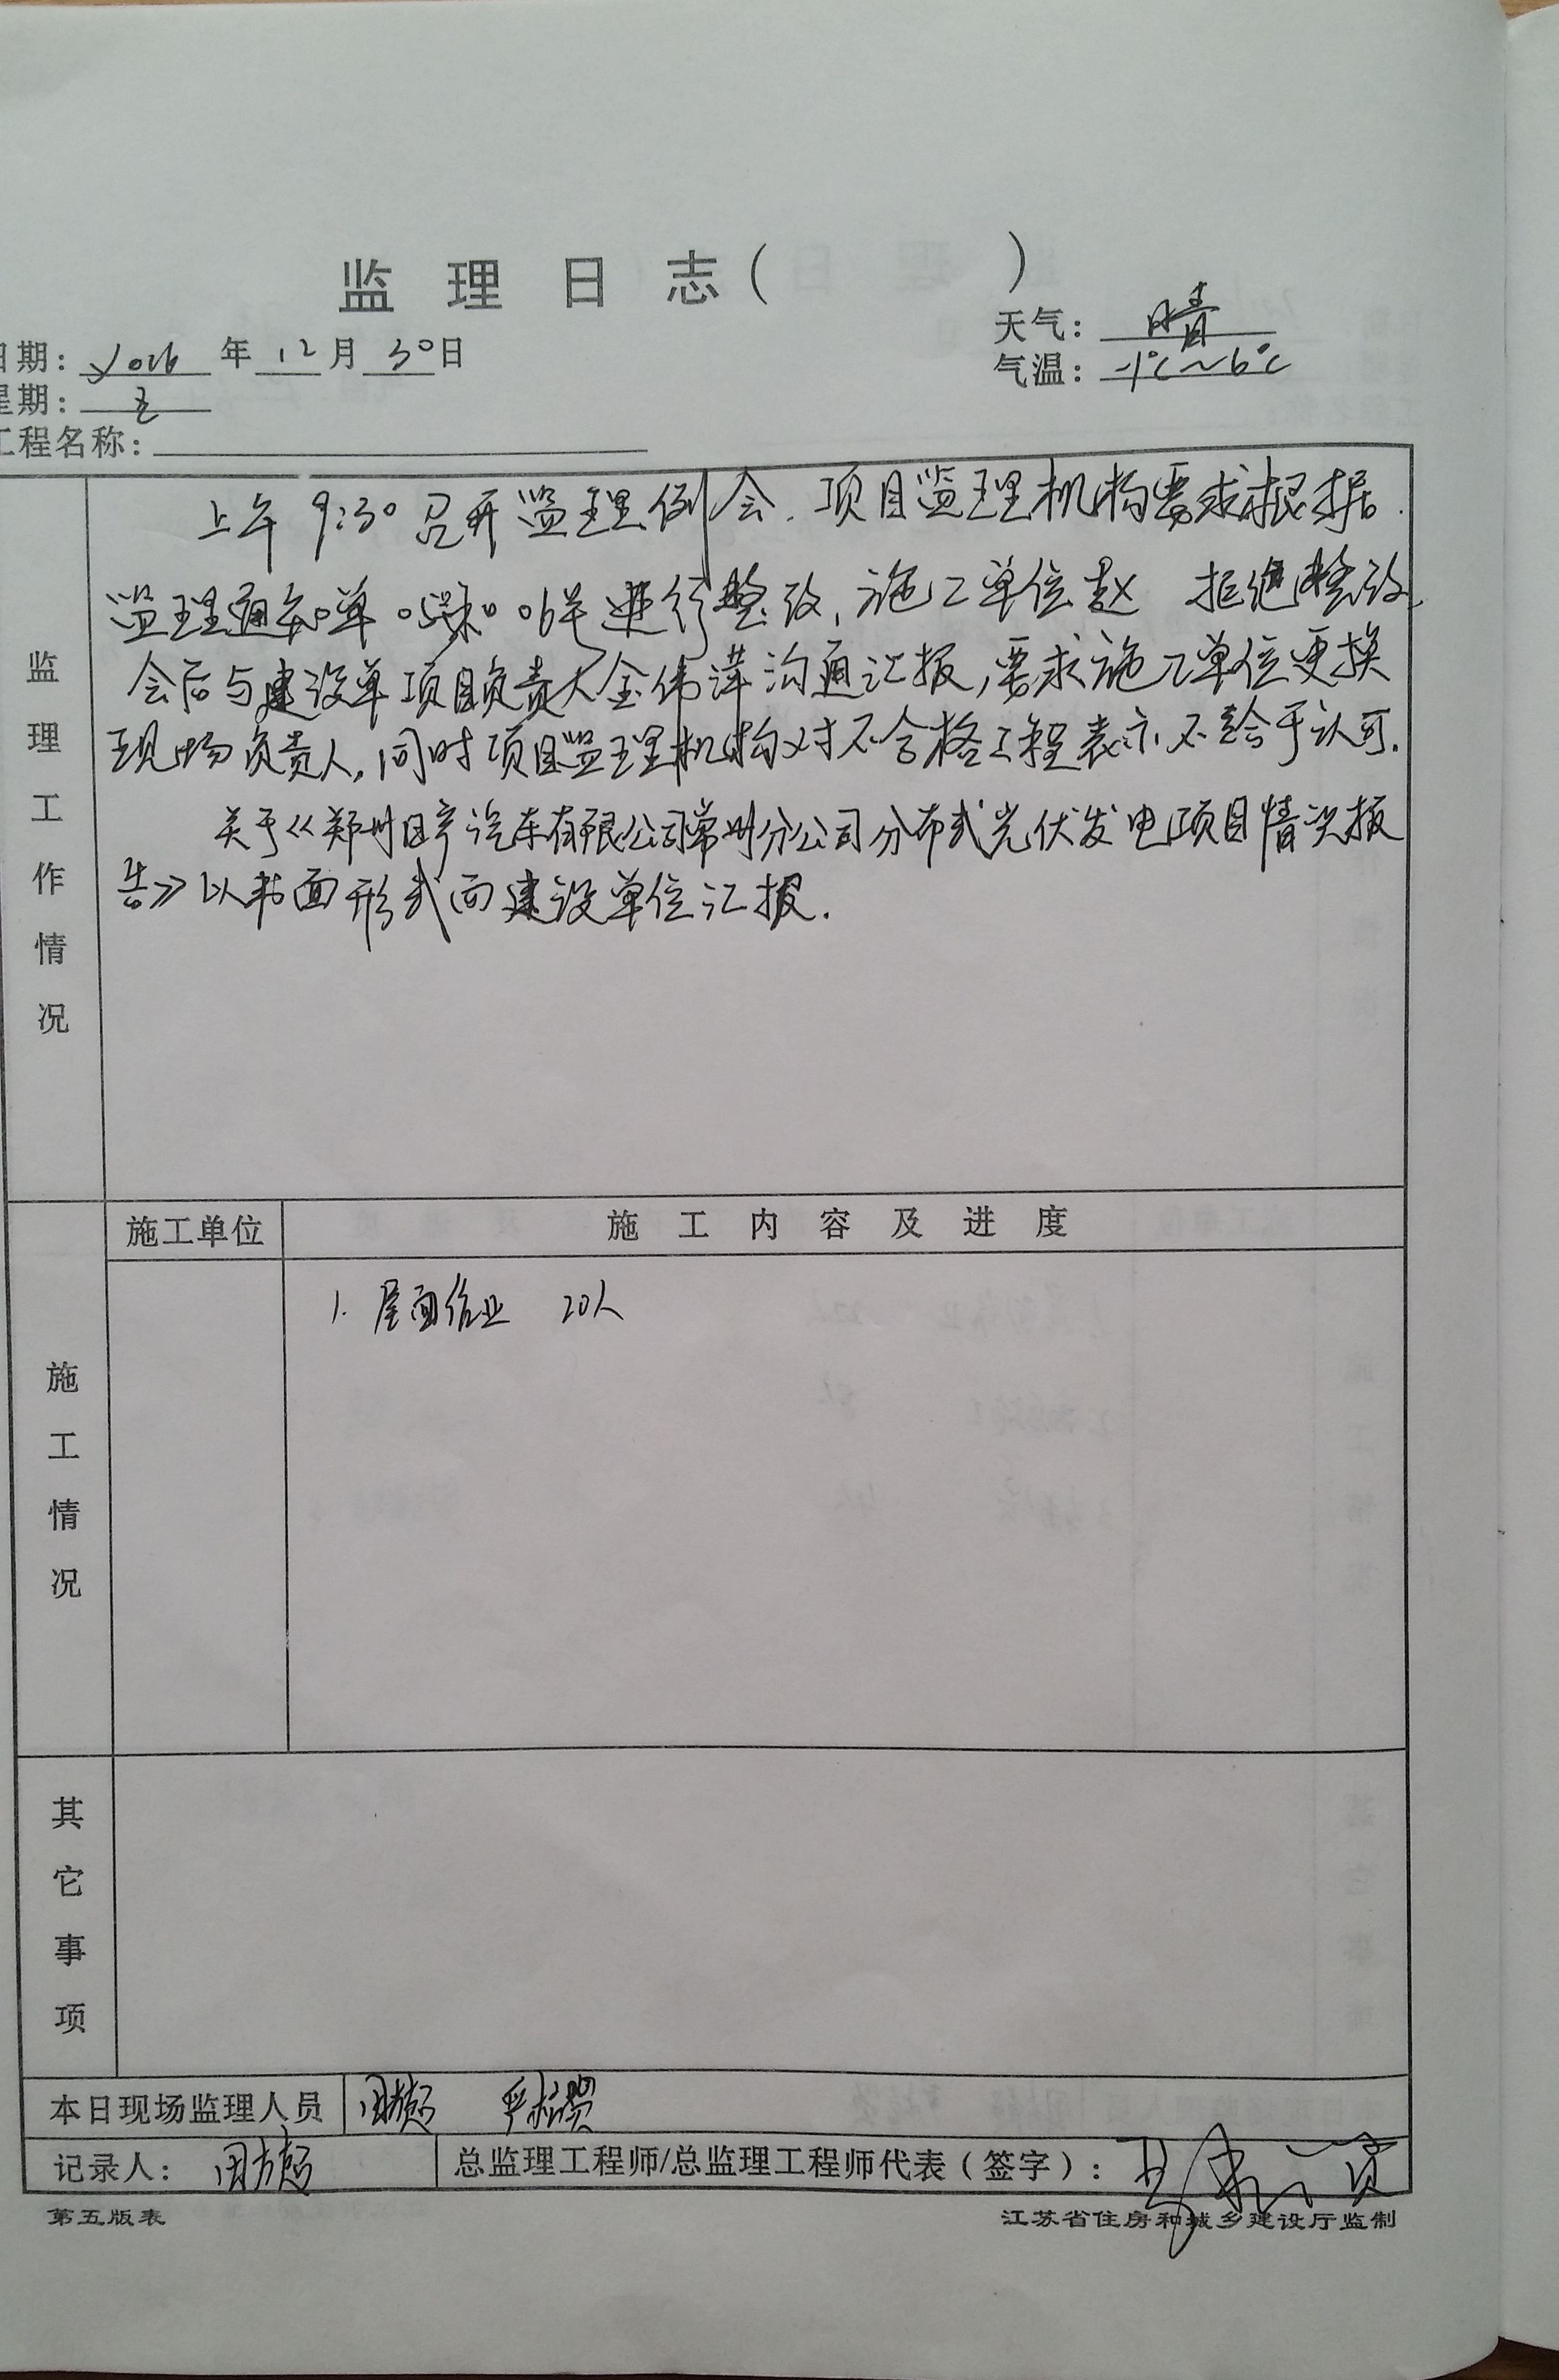 监理日志( )
日期: 2016 年 12 月 30 日
天气: 晴
气温: -1℃~6℃
星期: 五
工程名称:
监理工作情况
上午9:30召开监理例会.项目监理机构要求根据
监理通知单05和06号进行整改,施工单位赵 拒绝整改,
会后与建设单项目负责人金伟 沟通汇报,要求施工单位更换
现场负责人,同时项目监理机构对不合格工程表示不给于认可.
关于《郑州日产汽车有限公司常州分公司分布式光伏发电项目情况报
告》以书面形式向建设单位汇报.
施工单位 施工内容及进度
施工情况
1. 屋面作业 20人
其它事项
本日现场监理人员
记录人: 总监理工程师/总监理工程师代表(签字):
第五版表 江苏省住房和城乡建设厅监制